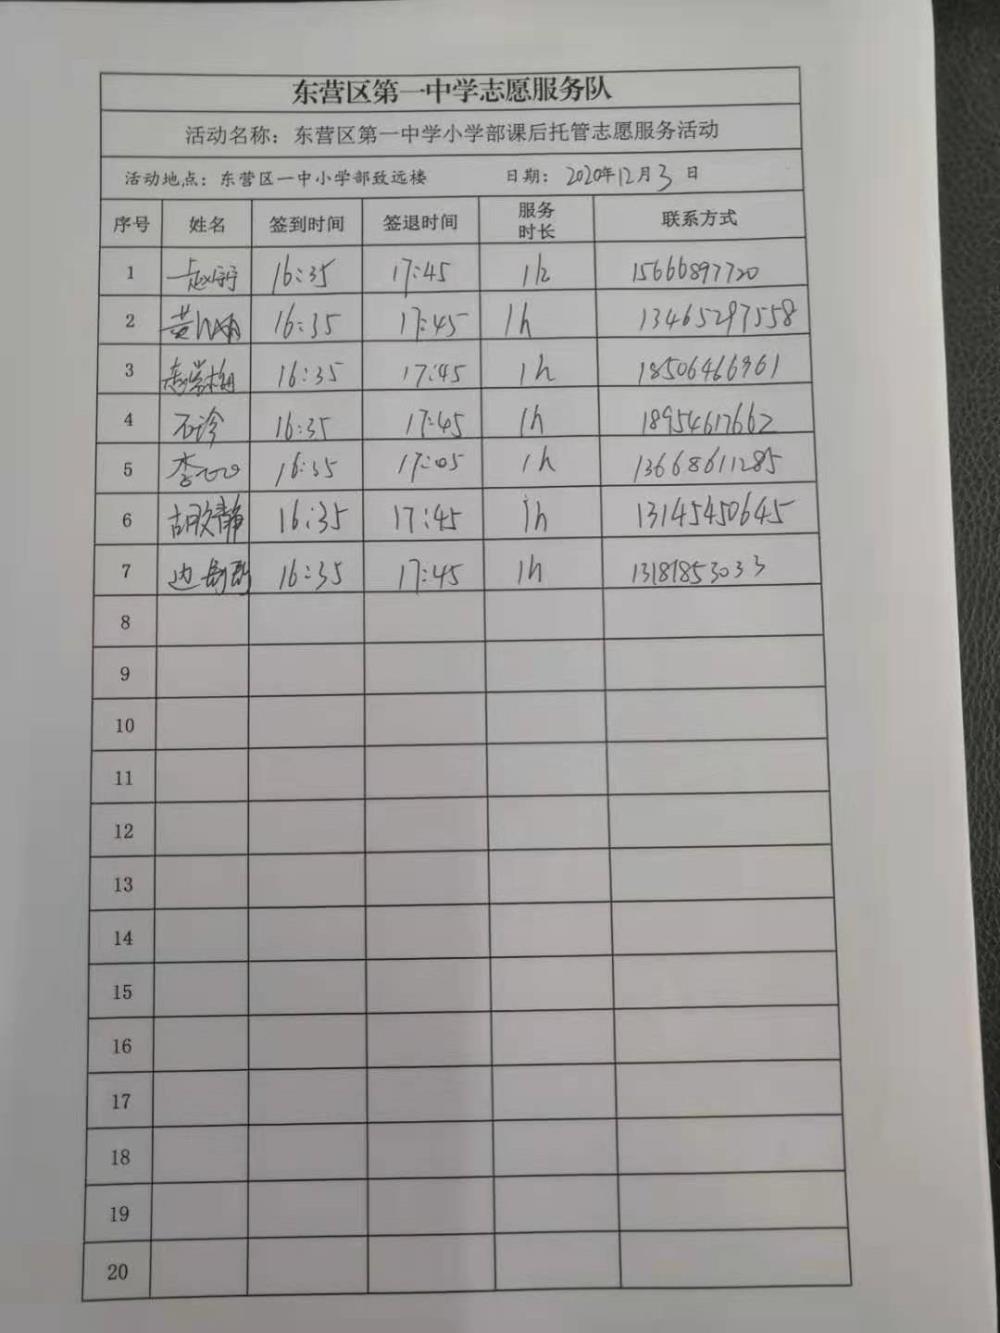 东营区第一中学志愿服务队
活动名称：东营区第一中学小学部课后托管志愿服务活动
活动地点：东营区一中小学部致远楼 日期：2020年12月3日
序号 姓名 签到时间 签退时间 服务时长 联系方式
1 16:35 17:45 1h 15666897720
2 黄 16:35 17:45 1h 13465297558
3 16:35 17:45 1h 18506466961
4 石诊 16:35 17:45 1h 18954617662
5 李 16:35 17:05 1h 13668611285
6 胡文静 16:35 17:45 1h 13145450645
7 边 16:35 17:45 1h 13181853033
8
9
10
11
12
13
14
15
16
17
18
19
20